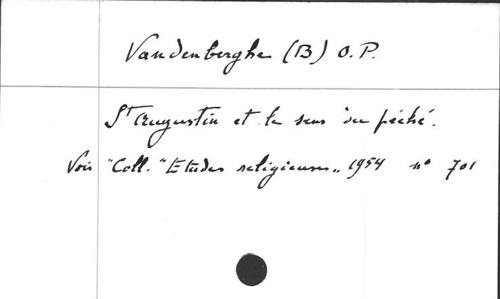 Vandenberghe (B) O.P.
St Augustin et le sens du péché.
Voir "Coll. "Etudes religieuses„ 1954 n° 701